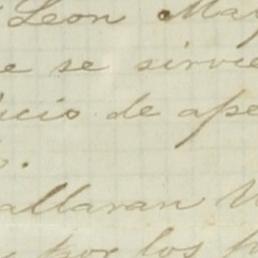 Leon May
e se sirvie
icio de ape
o.
allaran V
y por los p